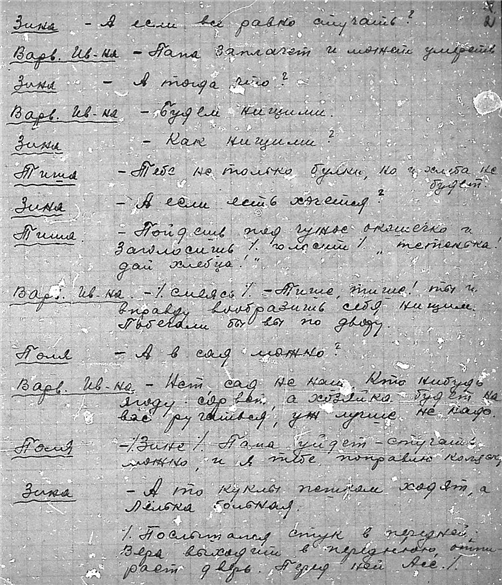 Зина - А если всё равно стучать?
Варв. Ив-на - Папа заплачет и может умереть
Зина - А тогда что?
Варв. Ив-на - Будем нищими.
Зина - Как нищими?
Тиша - Тебе не только булки, но и хлеба не
будет.
Зина - А если есть хочется?
Тиша - Пойдешь под чужое окошечко и
заголосишь /. голосит /. „тетенька!
дай хлебца!"
Варв. Ив-на. - /. смеясь /. - Тише, тише! ты и
вправду вообразишь себя нищим.
Побегали бы вы по двору.
Поля - А в сад можно?
Варв. Ив-на - Нет, сад не наш. Кто нибудь
ягоду сорвет, а хозяйка будет на
вас ругаться, уж лучше не надо.
Поля - /. Зине /. Папа уйдет - стучать
можно, и я тебе поправлю коляск
Зина - А то куклы пешком ходят, а
Лёлька больная.
/. Послышался стук в передней,
Вера выходит в переднюю,
рает дверь. Перед ней /.